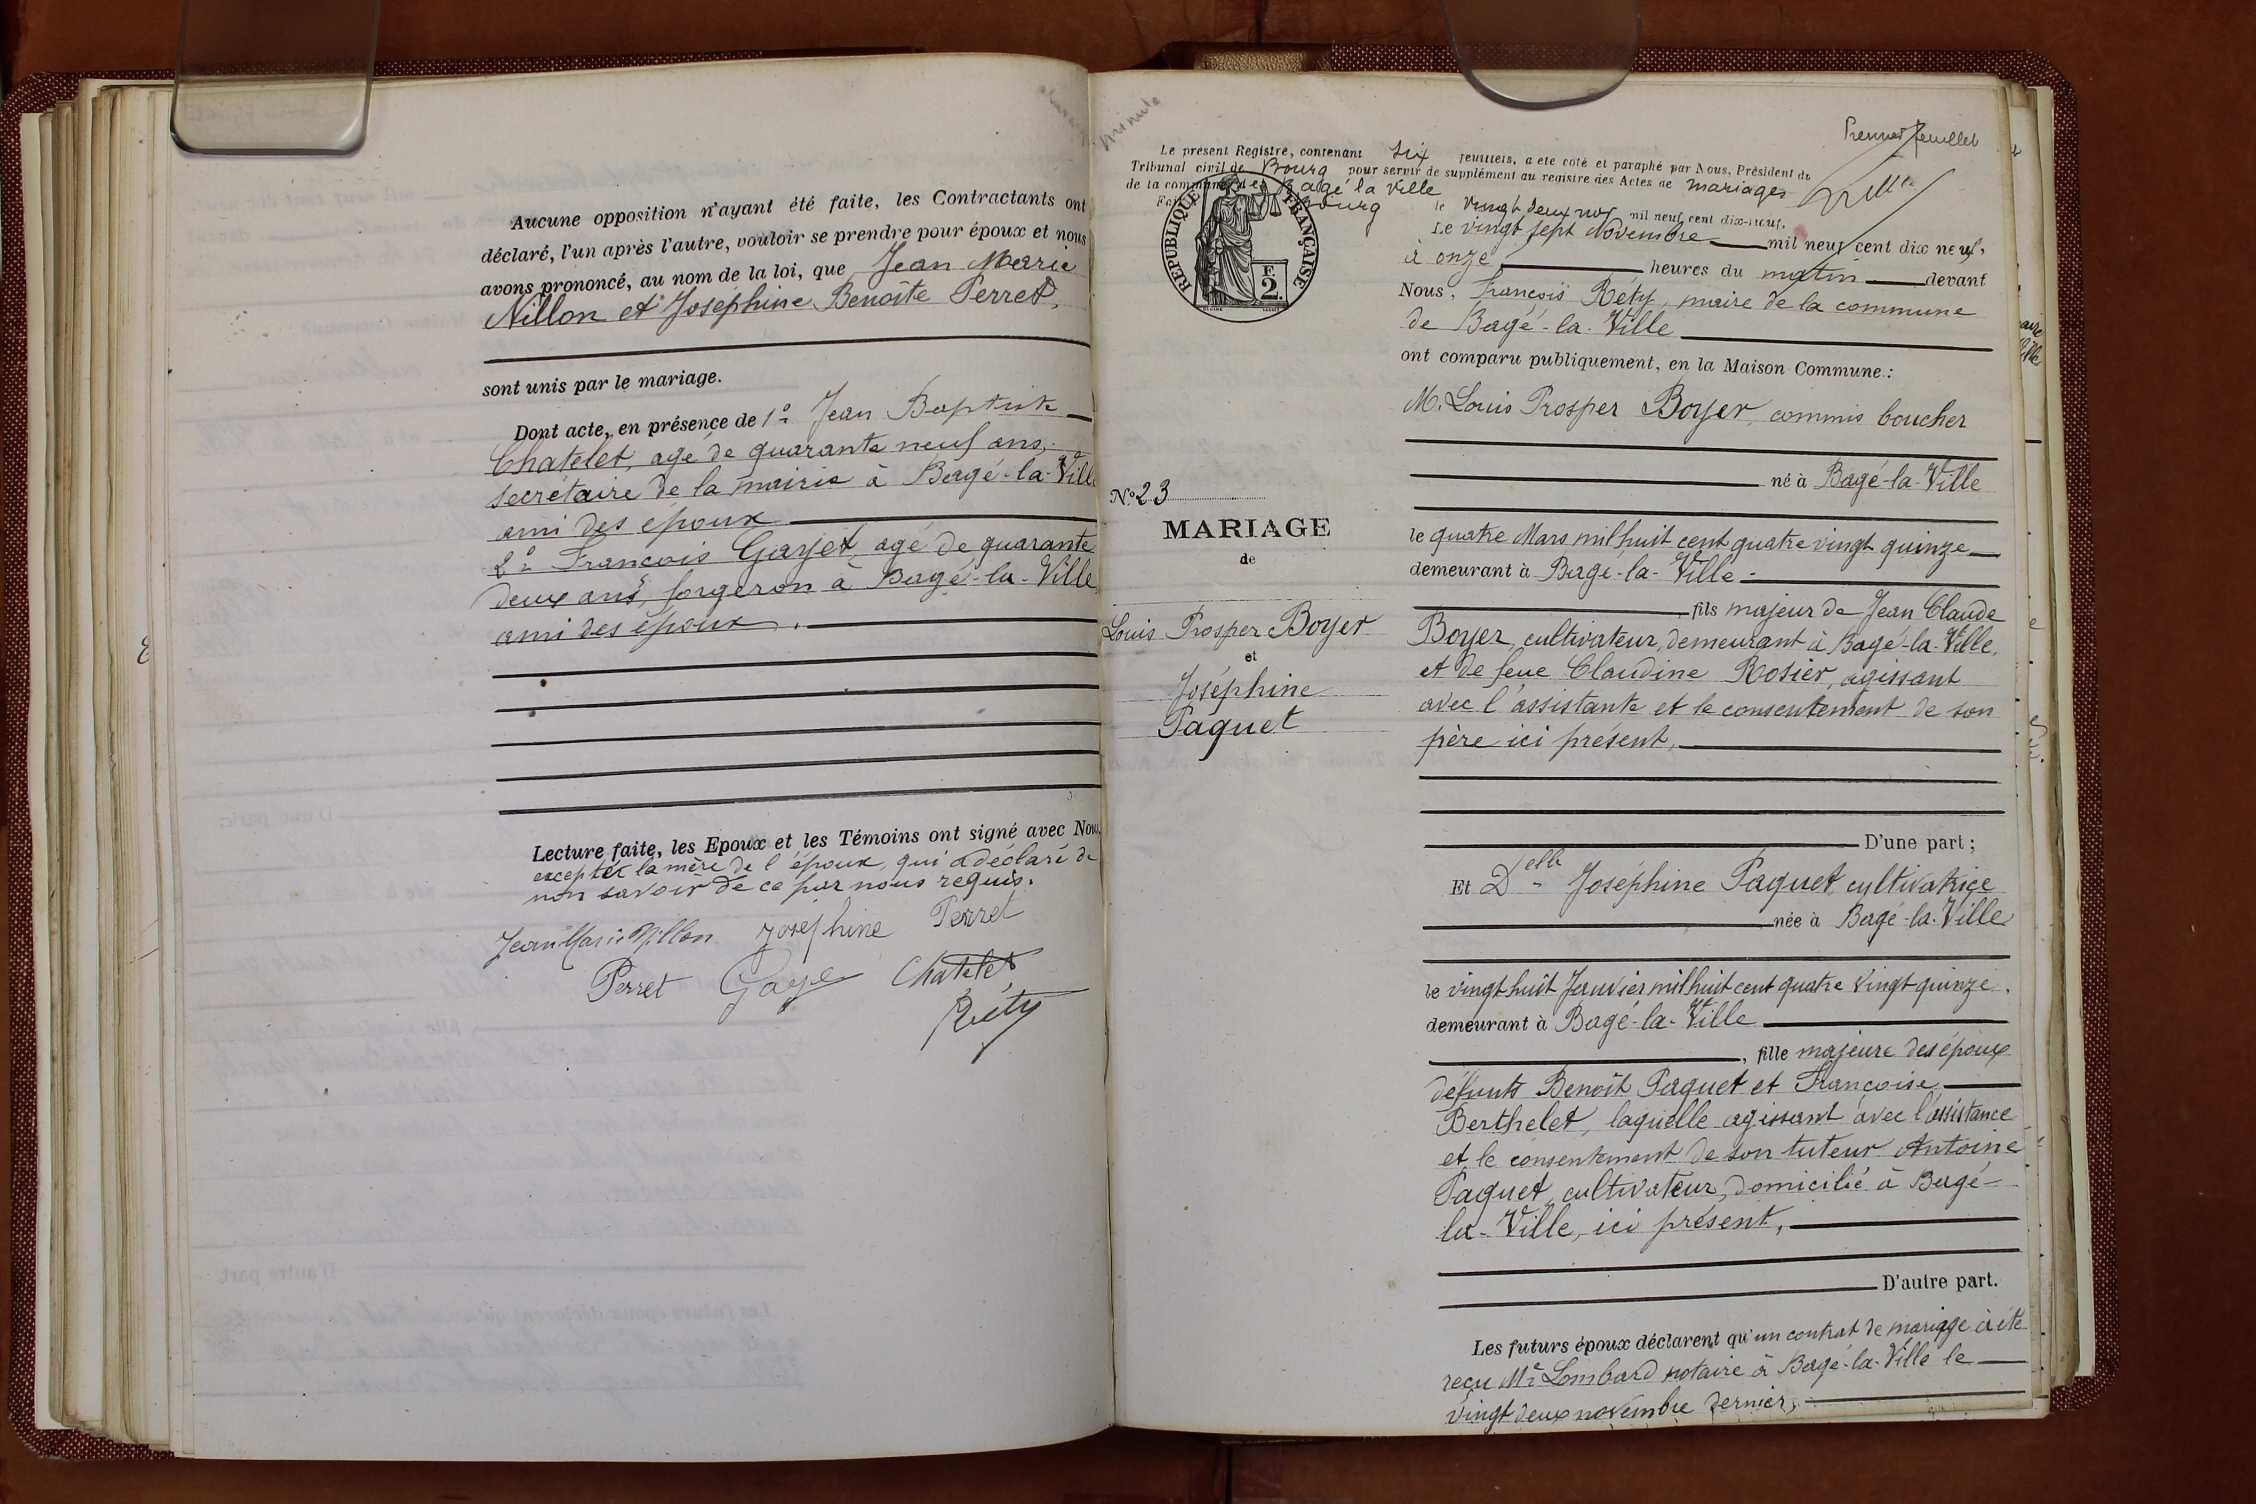 Aucune opposition n'ayant été faite, les Contractants ont
déclaré, l'un après l'autre, vouloir se prendre pour époux et nous
avons prononcé, au nom de la loi, que Jean Marie
Nillon et Joséphine Benoîte Perret,
sont unis par le mariage.
Dont acte, en présence de 1° Jean Baptiste
Chatelet, agé de quarante neuf ans,
secrétaire de la mairie à Bagé-la-Ville
ami des époux
2° François Gayet, agé de quarante
deux ans, forgeron à Bagé-la-Ville
ami des époux.
Lecture faite, les Epoux et les Témoins ont signé avec Nous,
excepté la mère de l'époux, qui a déclaré de
non savoir de ce par nous requis.
Jean Marie Nillon Joséphine Perret
Perret Gayet Chatelet
Réty
minute
Premier feuillet
Le présent Registre, contenant six feuillets, a été coté et paraphé par Nous, Président du
Tribunal civil de Bourg pour servir de supplément au registre des Actes de mariages
de la commune de Bagé la Ville
Bourg le vingt deux nov mil neuf cent dix-neuf.
REPUBLIQUE FRANÇAISE
2 F.
N° 23
MARIAGE
de
Louis Prosper Boyer
et
Joséphine
Paquet
Le vingt sept Novembre mil neuf cent dix neuf,
à onze heures du matin devant
Nous, François Réty, maire de la commune
de Bagé-la-Ville
ont comparu publiquement, en la Maison Commune :
M. Louis Prosper Boyer, commis boucher
né à Bagé-la-Ville
le quatre Mars mil huit cent quatre vingt quinze
demeurant à Bagé-la-Ville
fils majeur de Jean Claude
Boyer, cultivateur, demeurant à Bagé-la-Ville,
et de feue Claudine Rosier, agissant
avec l'assistante et le consentement de son
père ici présent,
D'une part ;
Et Delle Joséphine Paquet, cultivatrice
née à Bagé-la-Ville
le vingt huit Janvier mil huit cent quatre vingt quinze.
demeurant à Bagé-la-Ville
, fille majeure des époux
défunts Benoît Paquet et Françoise
Berthelet, laquelle agissant avec l'assistance
et le consentement de son tuteur Antoine
Paquet, cultivateur, domicilié à Bagé-
la-Ville, ici présent,
D'autre part.
Les futurs époux déclarent qu'un contrat de mariage à été
reçu Me Lombard notaire à Bagé-la-Ville le
vingt deux novembre dernier,